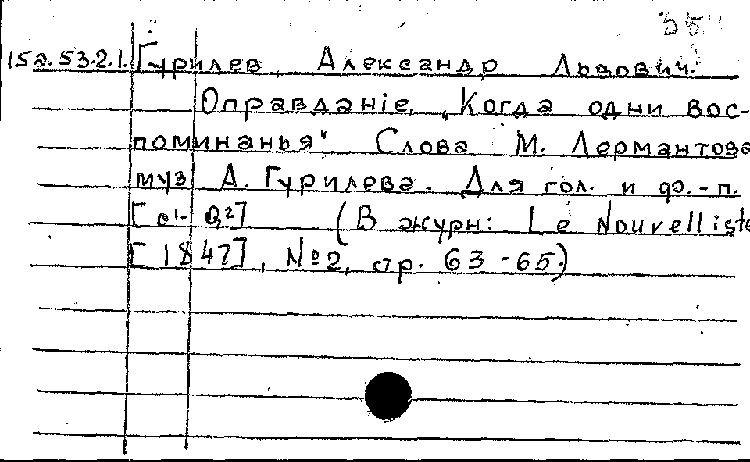 15а.53.2.1. Гурилев, Александр Львович.
Оправданіе. „Когда одни вос-
поминанья" Слова М. Лермантова
муз. А. Гурилева. Для гол. и ф.-п.
(В журн: Le Nouvelliste
[1847], №2, стр. 63-65.)